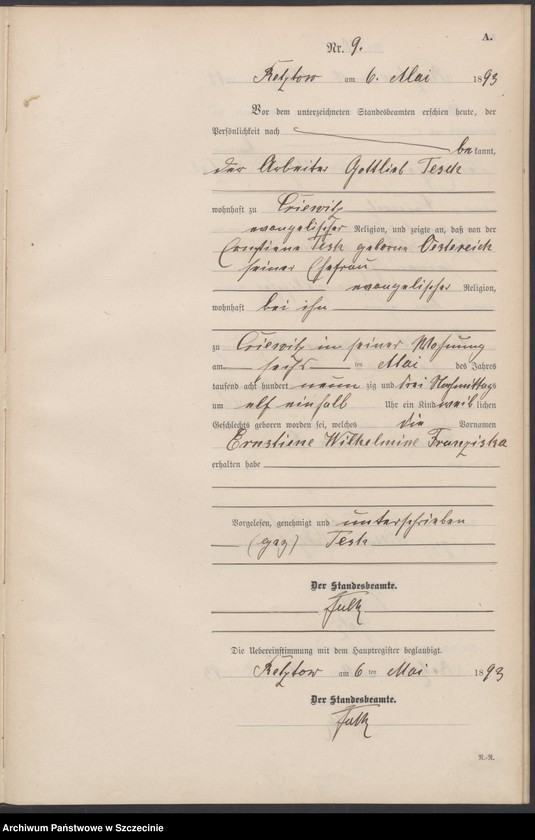 A.
Nr. 9.
Retztow am 6. Mai 1893
Vor dem unterzeichneten Standesbeamten erschien heute, der
Persönlichkeit nach
bekannt,
der Arbeiter Gottlieb Tesch
wohnhaft zu Criewitz
evangelischer Religion, und zeigte an, daß von der
Tesch geborne Oestereich
seiner Ehefrau
evangelischer Religion,
wohnhaft bei ihm
zu Criewitz in seiner Wohnung
am sechs ten Mai des Jahres
tausend acht hundert neun zig und drei Nachmittags
um elf einhalb Uhr ein Kind weiblichen
Geschlechts geboren worden sei, welches die Vornamen
Ernstiene Wilhelmine Franziska
erhalten habe
Vorgelesen, genehmigt und unterschrieben
(gez) Tesch
Der Standesbeamte.
Die Uebereinstimmung mit dem Hauptregister beglaubigt.
Retztow am 6 ten Mai 1893
Der Standesbeamte.
R.-R.
Archiwum Państwowe w Szczecinie